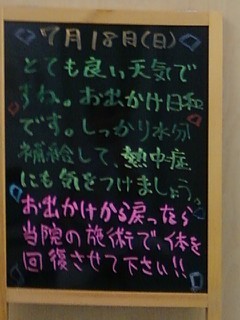 7月18日(日)
とても良い天気で
すね。お出かけ日和
です。しっかり水分
補給して、熱中症
にも気をつけましょう。
お出かけから戻ったら
当院の施術で、体を
回復させて下さい!!